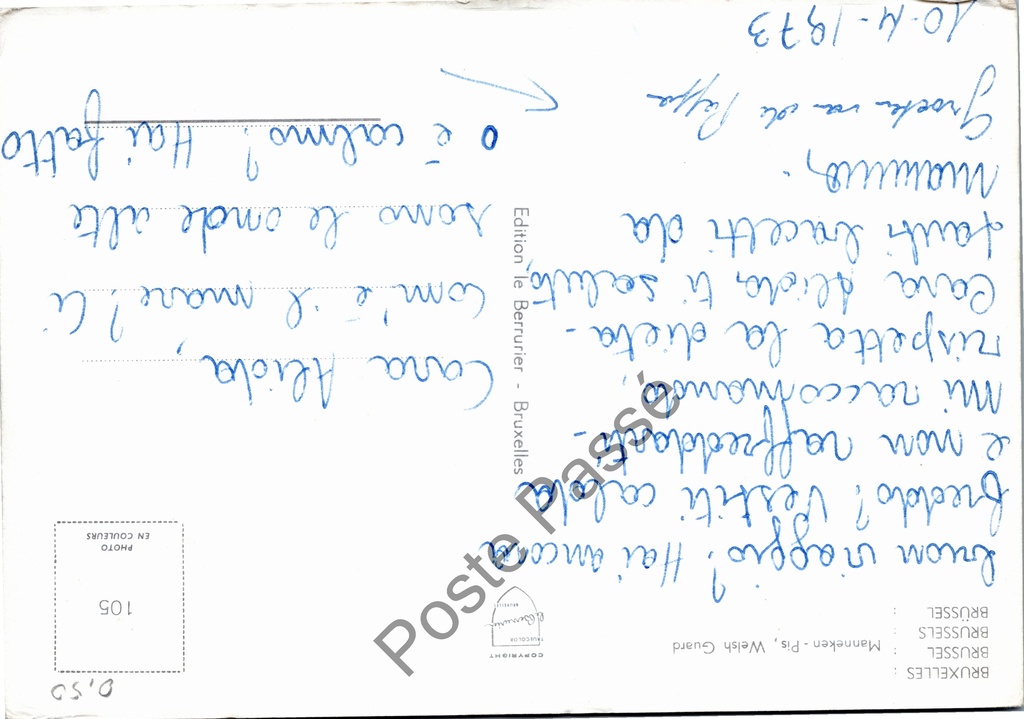 BRUXELLES :
BRUSSEL :
BRUSSELS :
BRÜSSEL :
Manneken-Pis, Welsh Guard
COPYRIGHT
THILLCOLOR
le Berrurier
BRUXELLES
105
PHOTO
EN COULEURS
0,50
Edition le Berrurier - Bruxelles
Cara Alida,
Com'è il mare? Ci
sono le onde alte
o è calmo? Hai fatto
buon viaggio? Hai ancora
freddo? Vestiti calda
e non raffreddarti-
Mi raccomando,
rispetta la dieta-
Cara Alida, ti saluto,
tanti bacetti da
Mammina.
Groeten van de Pappa
10-4-1973
Poste Passé